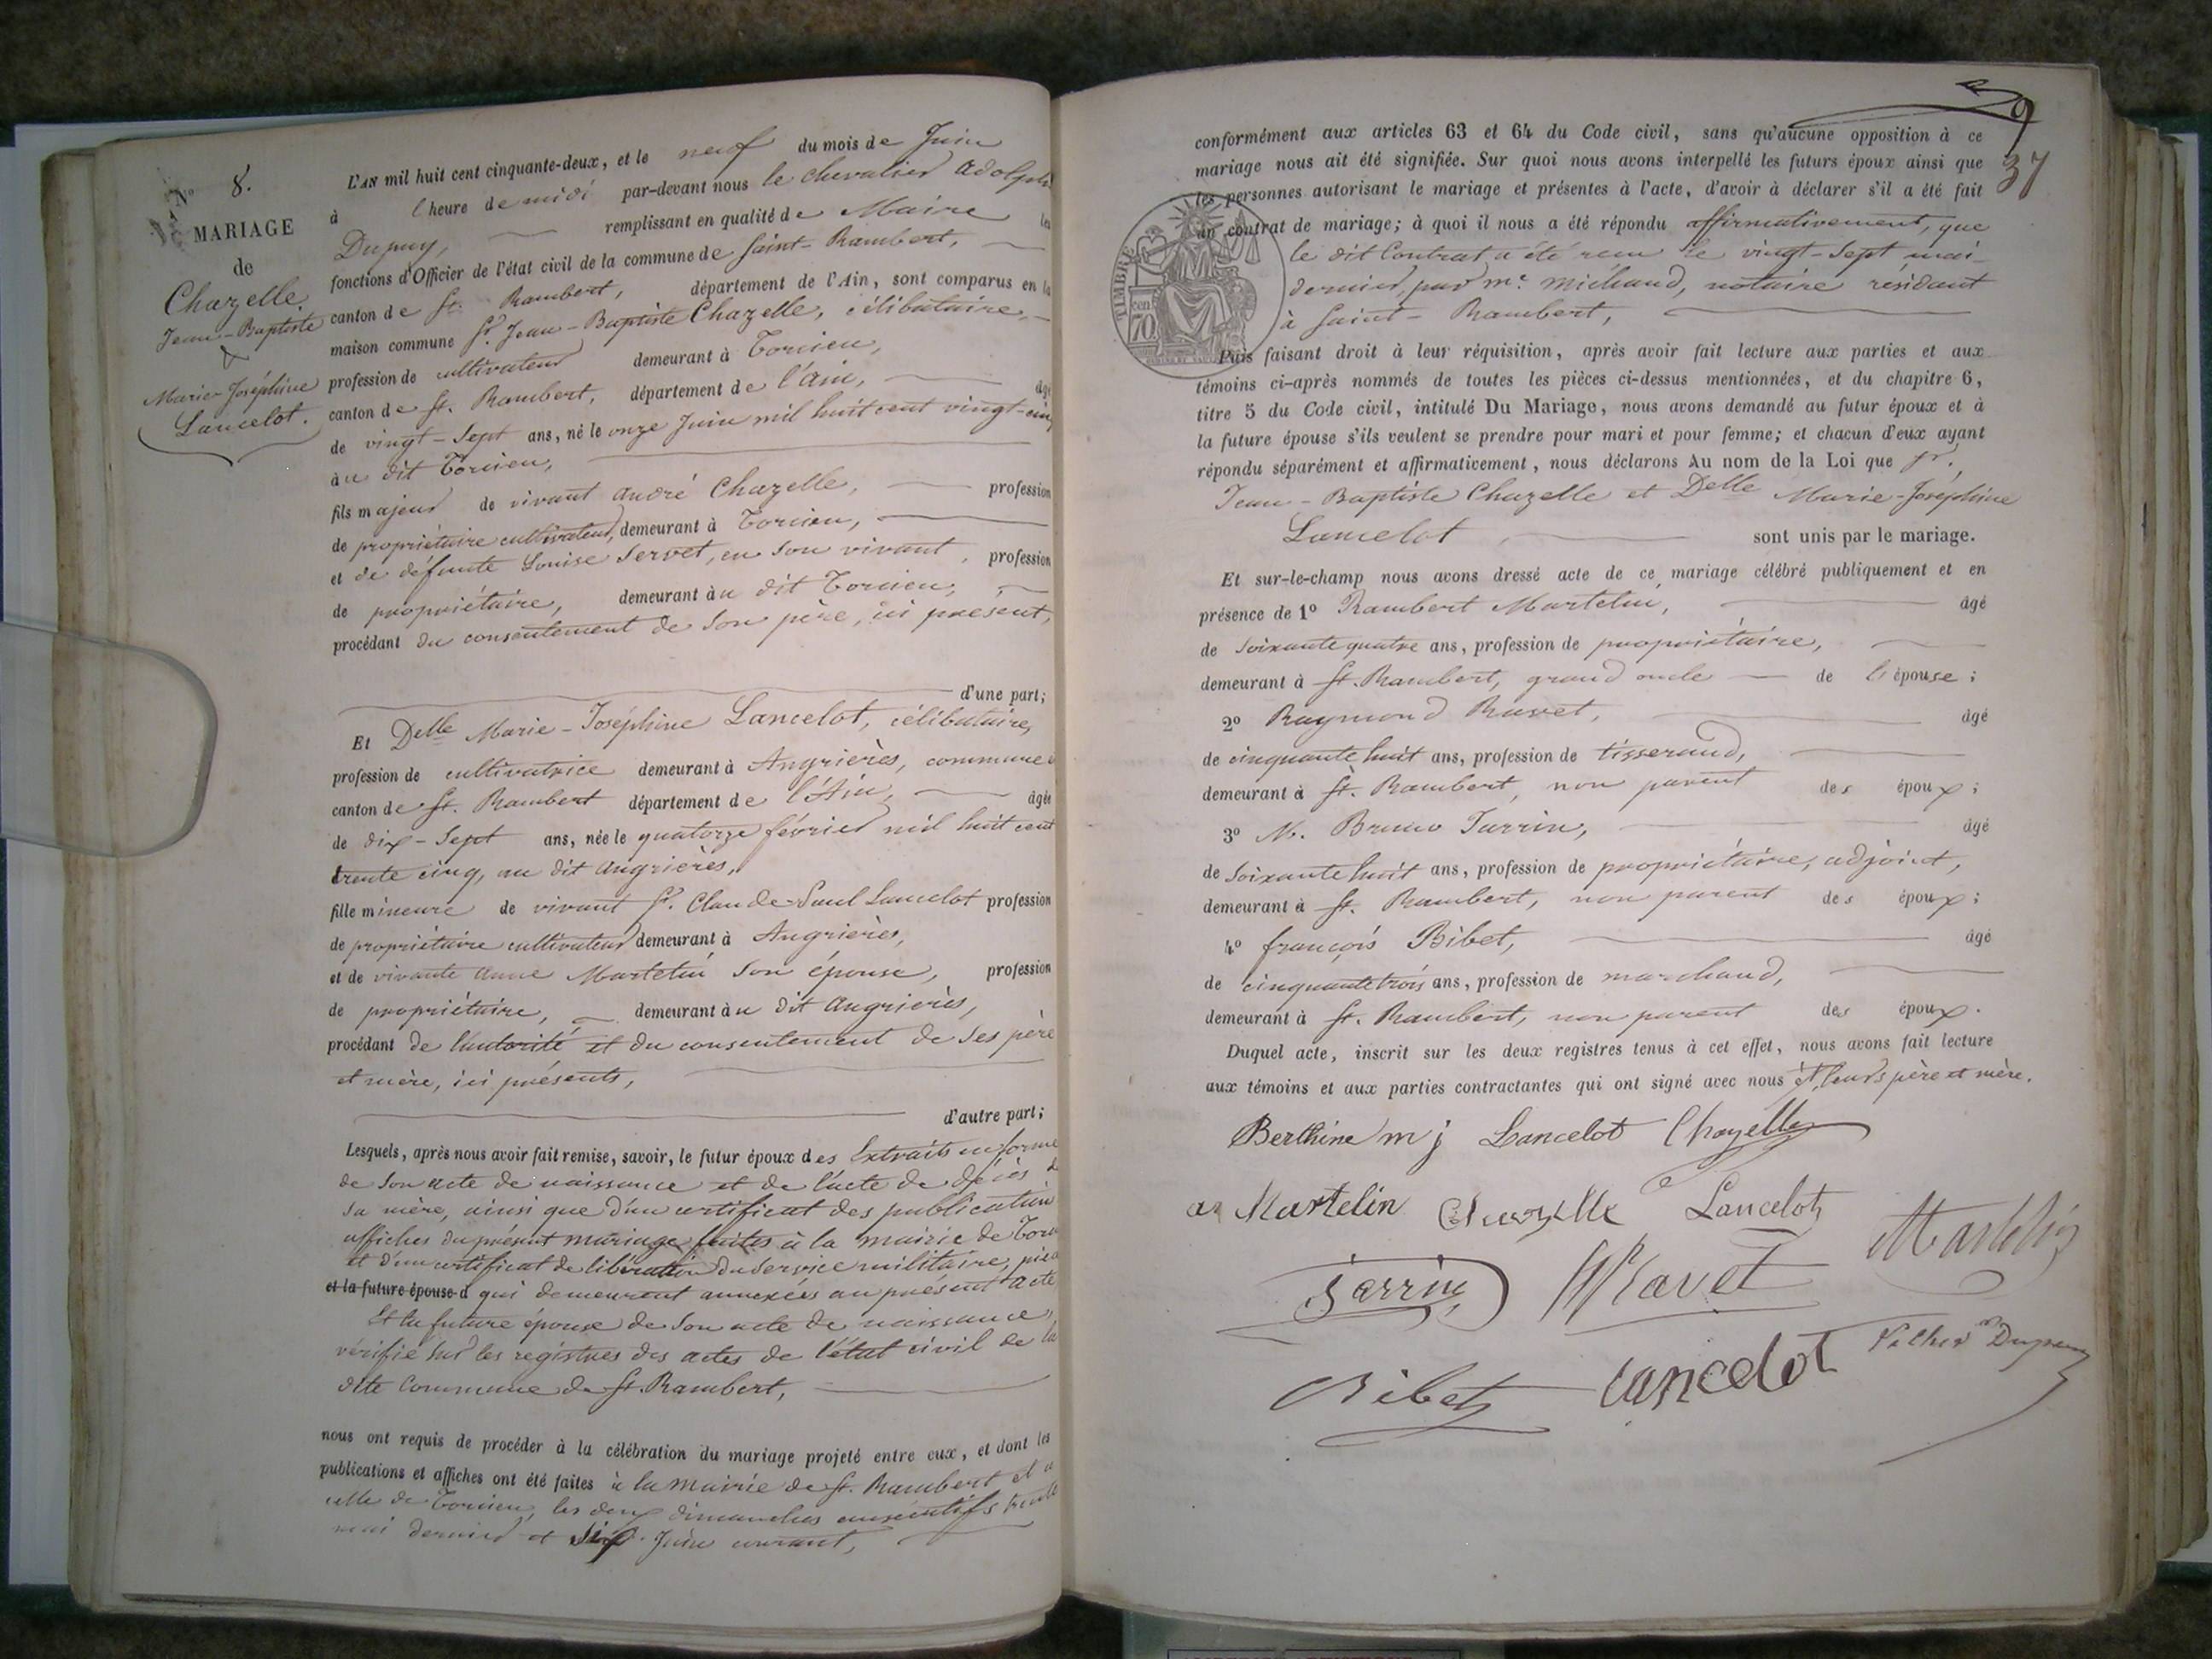 N° 8.
MARIAGE
de
Chazelle
Jean-Baptiste
&
Marie-Joséphine
Lancelot.
L'AN mil huit cent cinquante-deux, et le neuf du mois de Juin
à l'heure de midi par-devant nous le chevalier Adolphe
Dupuy, remplissant en qualité de Maire les
fonctions d'Officier de l'état civil de la commune de Saint-Rambert,
canton de St. Rambert, département de l'Ain, sont comparus en la
maison commune Sr. Jean-Baptiste Chazelle, célibataire,
profession de cultivateur demeurant à Torcieu,
canton de St. Rambert, département de l'Ain, âgé
de vingt-sept ans, né le onze Juin mil huit cent vingt-cinq
au dit Torcieu,
fils majeur de vivant André Chazelle, profession
de propriétaire cultivateur, demeurant à Torcieu,
et de défunte Louise Servet, en son vivant, profession
de propriétaire, demeurant au dit Torcieu,
procédant du consentement de son père, ici présent,
d'une part;
Et Delle Marie-Joséphine Lancelot, célibataire,
profession de cultivatrice demeurant à Angrières, commune
canton de St. Rambert département de l'Ain, âgée
de dix-sept ans, née le quatorze février mil huit cent
trente cinq, au dit Angrières,
fille mineure de vivant Sr. Claude-Paul Lancelot profession
de propriétaire cultivateur demeurant à Angrières,
et de vivante Anne Martelin son épouse, profession
de propriétaire, demeurant au dit Angrières,
procédant de l'autorité et du consentement de ses père
et mère, ici présents,
d'autre part;
Lesquels, après nous avoir fait remise, savoir, le futur époux des Extraits en forme
de son acte de naissance et de l'acte de décès de
sa mère, ainsi que d'un certificat des publication
affiches du présent mariage faites à la mairie de Torcieu
et d'un certificat de libération du service militaire, pièces
et la future épouse d qui demeurent annexées au présent acte
Et la future épouse de son acte de naissance,
vérifié sur les registres des actes de l'état civil de la
dite Commune de St. Rambert,
nous ont requis de procéder à la célébration du mariage projeté entre eux, et dont les
publications et affiches ont été faites à la mairie de St. Rambert et à
celle de Torcieu, les deux dimanches consécutifs trente
mai dernier et six Juin courant,
37
conformément aux articles 63 et 64 du Code civil, sans qu'aucune opposition à ce
mariage nous ait été signifiée. Sur quoi nous avons interpellé les futurs époux ainsi que
les personnes autorisant le mariage et présentes à l'acte, d'avoir à déclarer s'il a été fait
un contrat de mariage; à quoi il nous a été répondu affirmativement, que
le dit Contrat a été reçu le vingt-sept mai
dernier, par Me. Michaud, notaire résidant
à Saint-Rambert,
TIMBRE
cen
70
Puis faisant droit à leur réquisition, après avoir fait lecture aux parties et aux
témoins ci-après nommés de toutes les pièces ci-dessus mentionnées, et du chapitre 6,
titre 5 du Code civil, intitulé Du Mariage, nous avons demandé au futur époux et à
la future épouse s'ils veulent se prendre pour mari et pour femme; et chacun d'eux ayant
répondu séparément et affirmativement, nous déclarons Au nom de la Loi que Sr.
Jean-Baptiste Chazelle et Delle Marie-Joséphine
Lancelot sont unis par le mariage.
Et sur-le-champ nous avons dressé acte de ce mariage célébré publiquement et en
présence de 1° Rambert Martelin, âgé
de soixante quatre ans, profession de propriétaire,
demeurant à St. Rambert, grand oncle de l'épouse;
2° Raymond Ravet, âgé
de cinquante huit ans, profession de tisserand,
demeurant à St. Rambert, non parent des époux;
3° M. Bruno Jarrin, âgé
de soixante huit ans, profession de propriétaire, adjoint,
demeurant à St. Rambert, non parent des époux;
4° françois Bibet, âgé
de cinquante trois ans, profession de marchand,
demeurant à St. Rambert, non parent des époux.
Duquel acte, inscrit sur les deux registres tenus à cet effet, nous avons fait lecture
aux témoins et aux parties contractantes qui ont signé avec nous et leurs père et mère.
Berthine m j Lancelot Chazelle
a. Martelin Chazelle Lancelot
Jarrin Ravet Martelin
Bibet Lancelot Dupuy